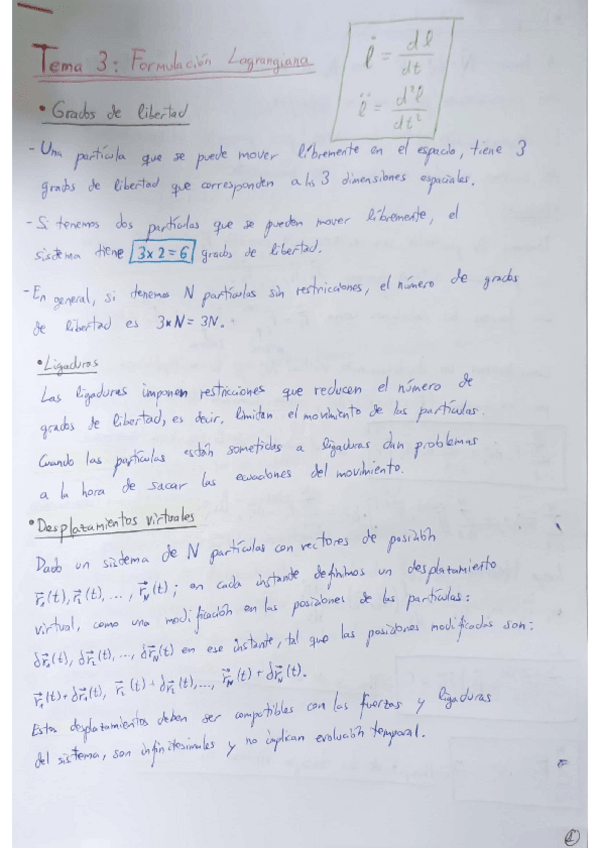 Tema 3: Formulación Lagrangiana
l̇ = dl/dt
l̈ = d²l/dt²
• Grados de libertad
- Una partícula que se puede mover libremente en el espacio, tiene 3
grados de libertad que corresponden a las 3 dimensiones espaciales.
- Si tenemos dos partículas que se pueden mover libremente, el
sistema tiene 3x2=6 grados de libertad.
- En general, si tenemos N partículas sin restricciones, el número de grados
de libertad es 3xN = 3N.
• Ligaduras
Las ligaduras imponen restricciones que reducen el número de
grados de libertad, es decir, limitan el movimiento de las partículas.
Cuando las partículas están sometidas a ligaduras dan problemas
a la hora de sacar las ecuaciones del movimiento.
• Desplazamientos virtuales
Dado un sistema de N partículas con vectores de posición
r⃗₁(t), r⃗₂(t), ..., r⃗_N(t); en cada instante definimos un desplazamiento
virtual, como una modificación en las posiciones de las partículas:
δr⃗₁(t), δr⃗₂(t), ..., δr⃗_N(t) en ese instante, tal que las posiciones modificadas son:
r⃗₁(t)+δr⃗₁(t), r⃗₂(t)+δr⃗₂(t), ..., r⃗_N(t)+δr⃗_N(t).
Estos desplazamientos deben ser compatibles con las fuerzas y ligaduras
del sistema, son infinitesimales y no implican evolución temporal.
1